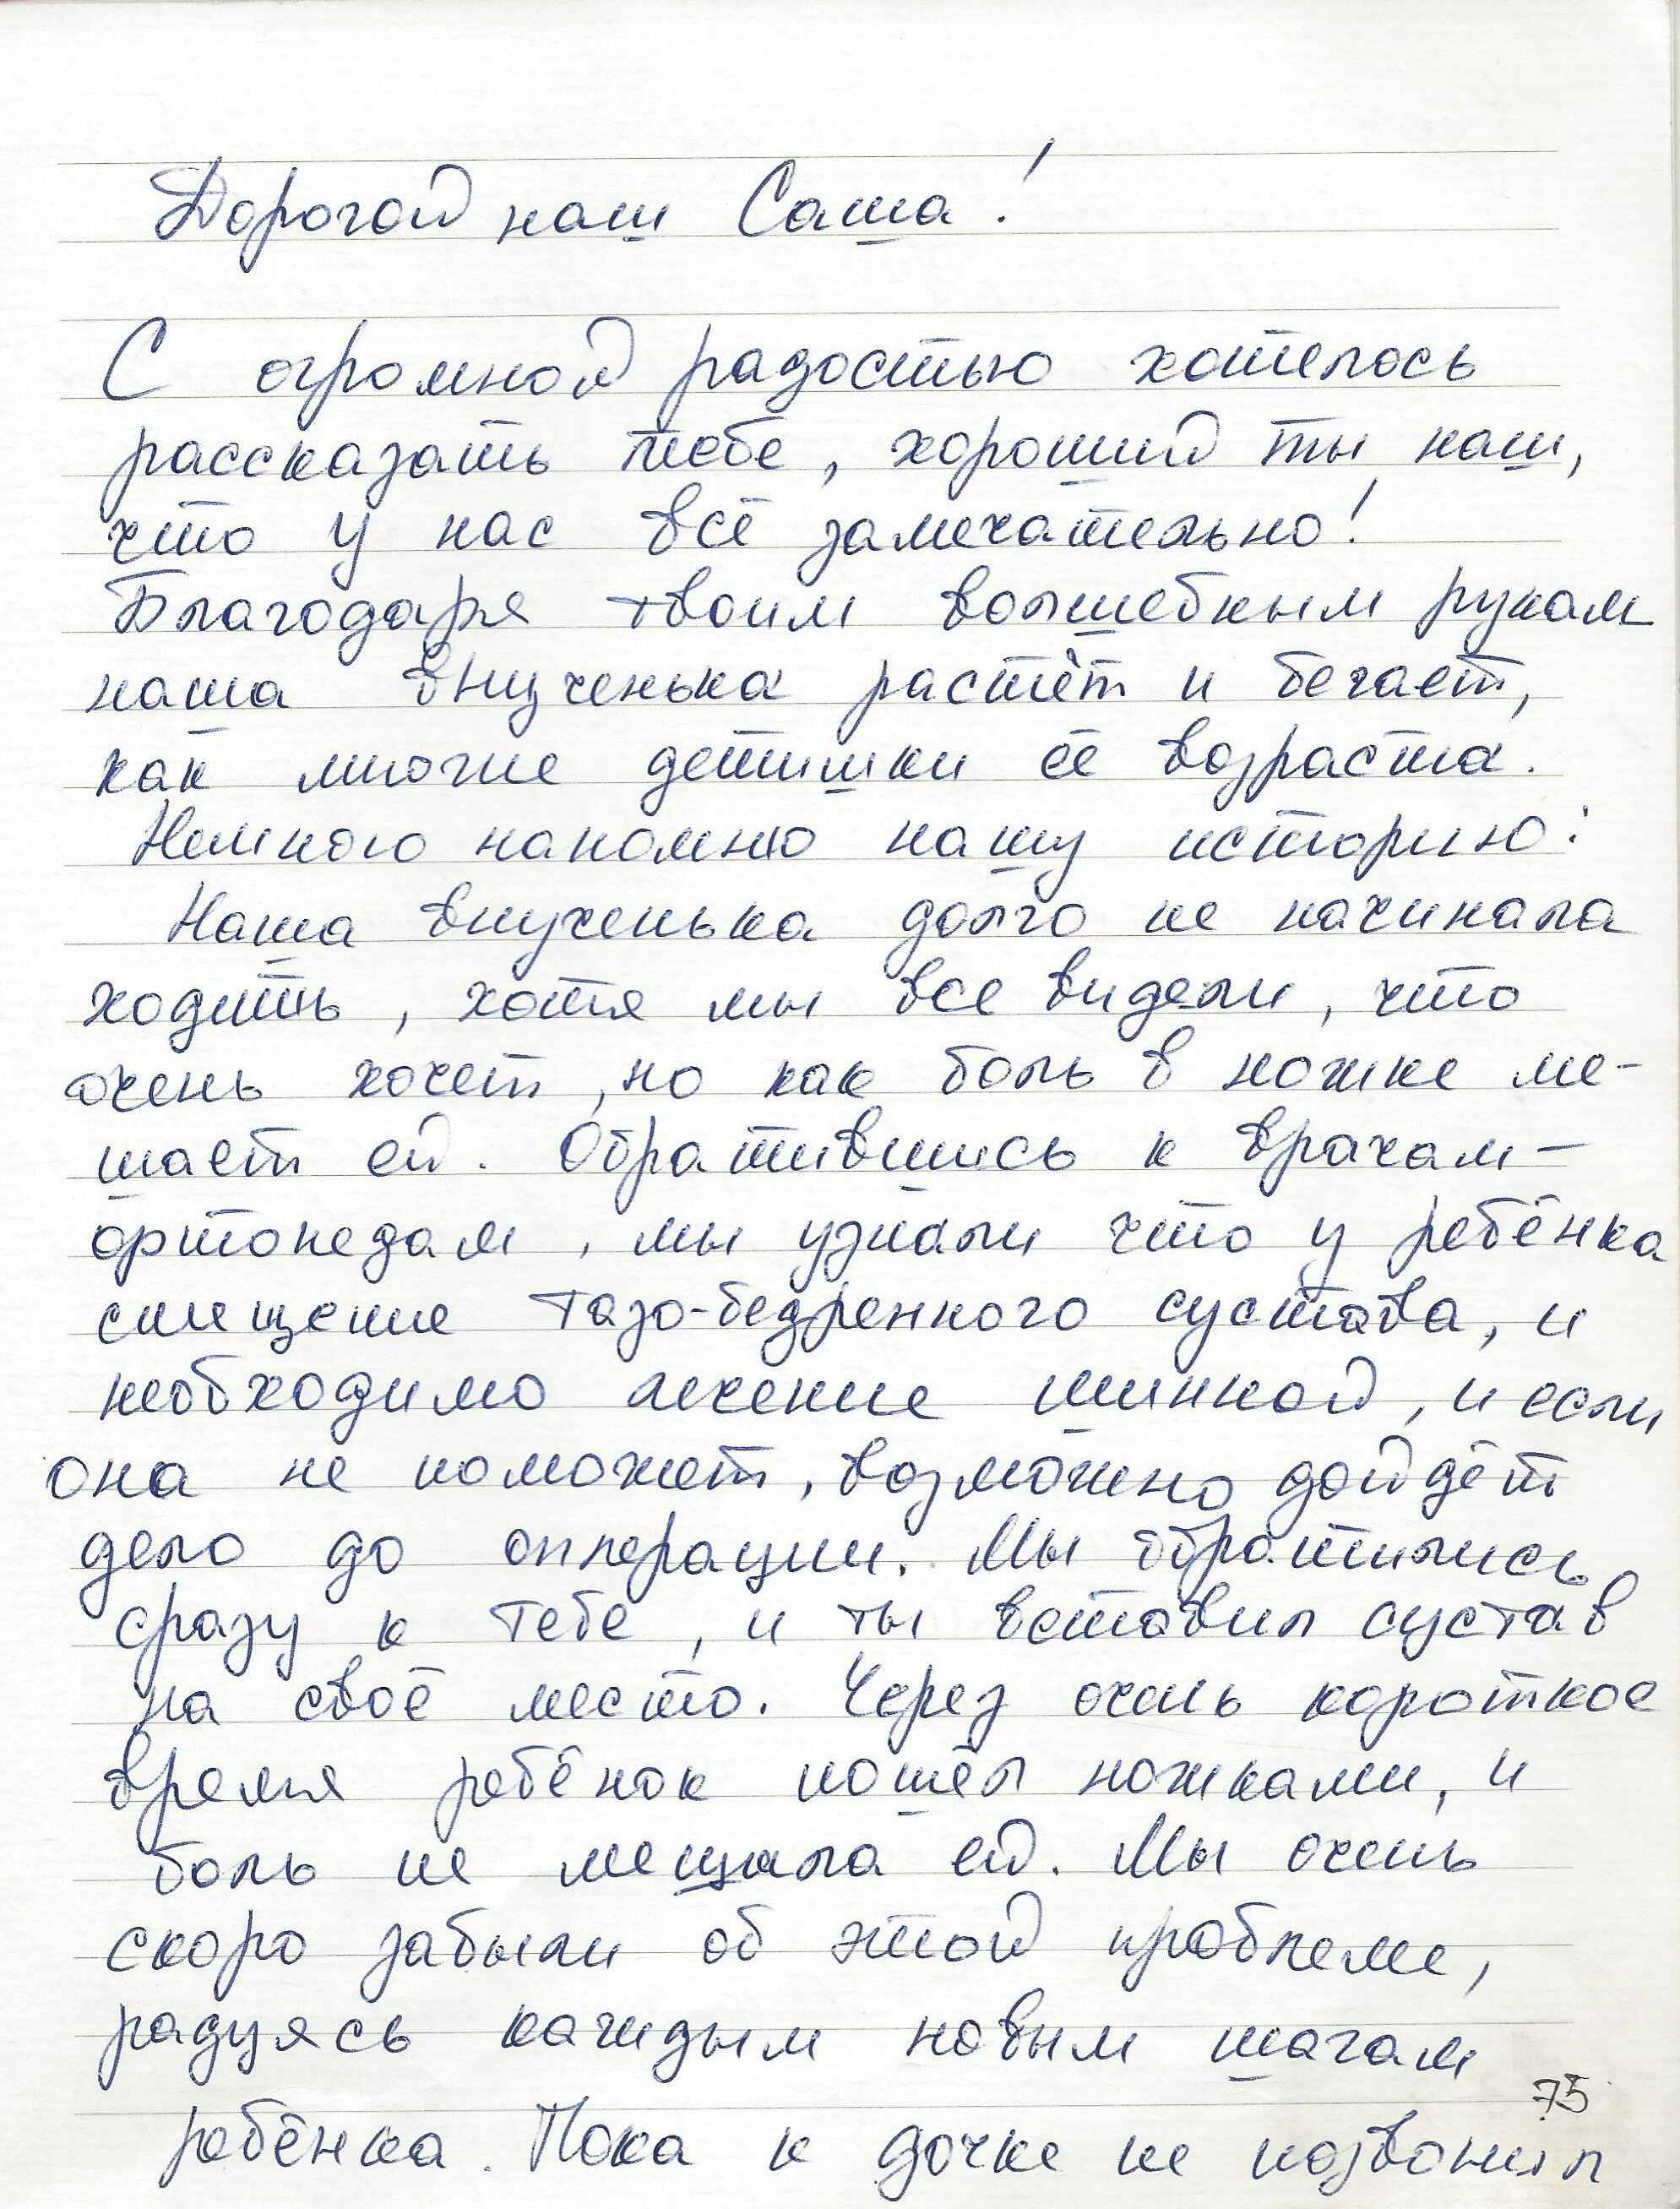 Дорогой наш Саша!
С огромной радостью хотелось
рассказать тебе, хороший ты наш,
что у нас всё замечательно!
Благодаря твоим волшебным рукам
наша внученька растёт и бегает,
как многие детишки её возраста.
Немного напомню нашу историю:
Наша внученька долго не начинала
ходить, хотя мы все видели, что
очень хочет, но как боль в ножке ме-
шает ей. Обратившись к врачам-
ортопедам, мы узнали что у ребёнка
смещение тазо-бедренного сустава, и
необходимо лечение шинной, и если
она не поможет, возможно дойдёт
дело до опперации. Мы обратились
сразу к тебе, и ты вставил сустав
на своё место. Через очень короткое
время ребёнок пошёл ножками, и
боль не мешала ей. Мы очень
скоро забыли об этой проблеме,
радуясь каждым новым шагам
75
ребёнка. Пока к дочке не позвонил